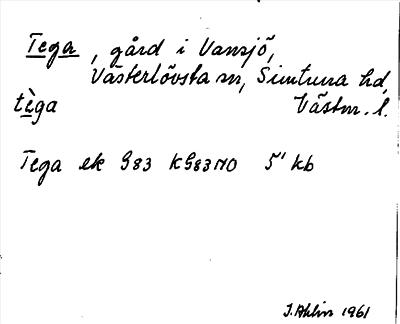 Tega, gård i Vansjö,
Västerlövsta sn, Simtuna hd,
tèga Västm. l.
Tega ek G83 KG83NO 5' kb
I. Ahlin 1961